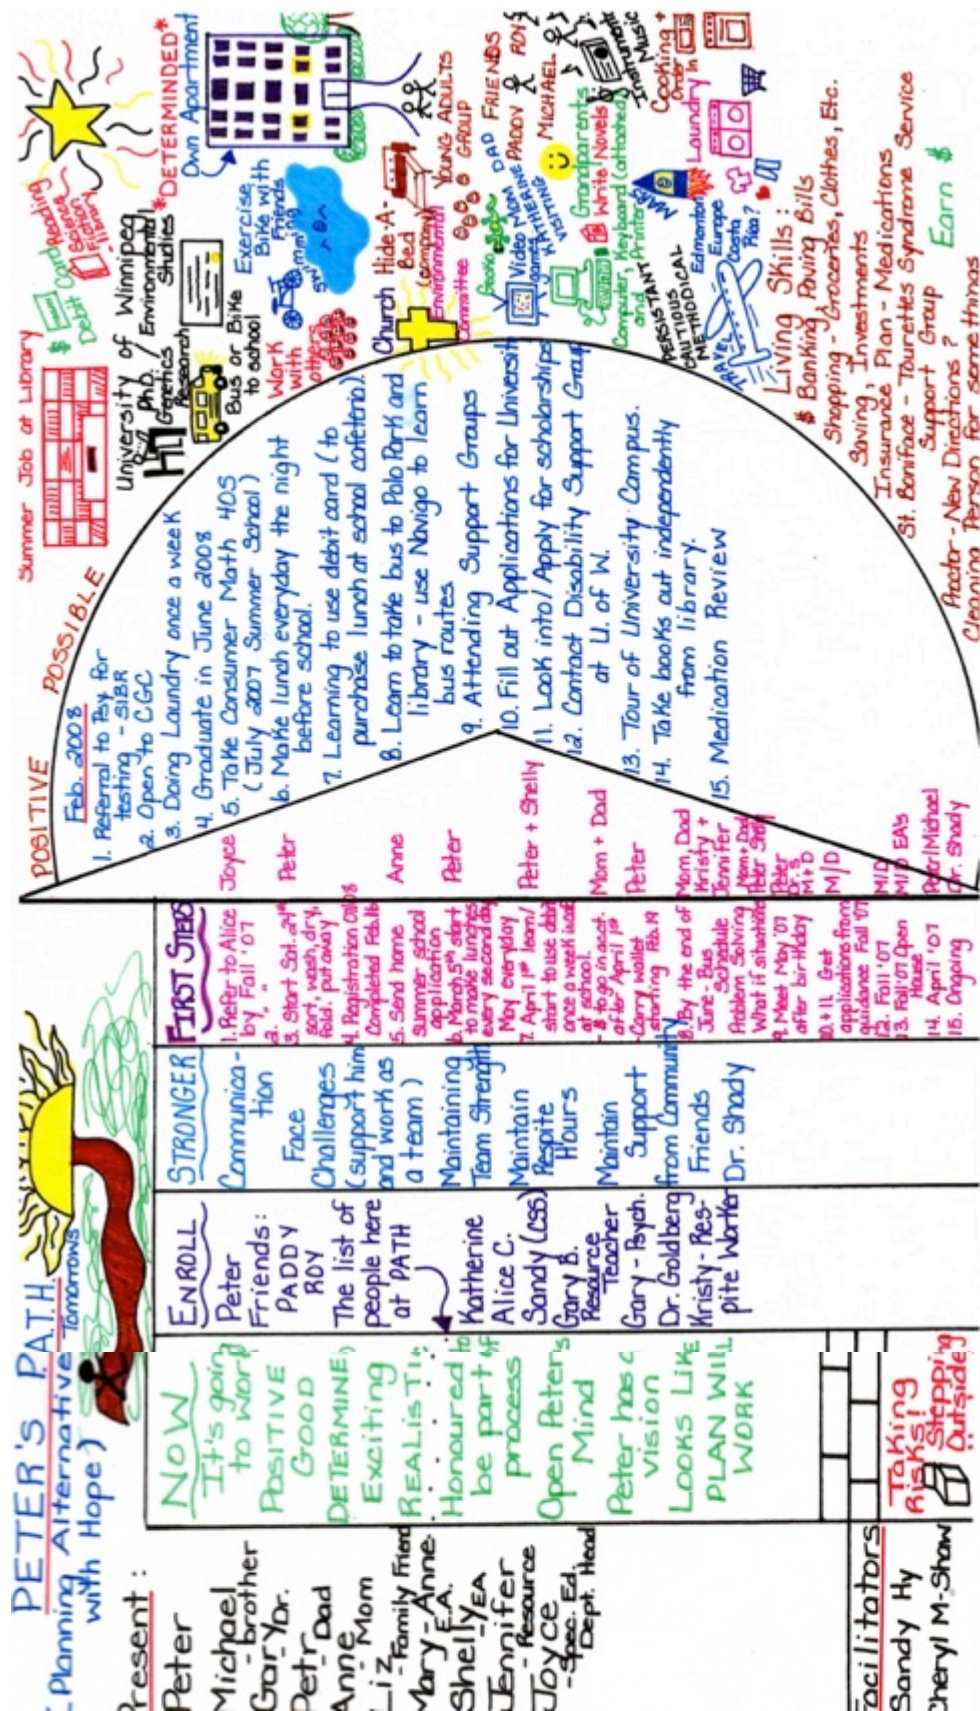 PETER'S PATH
Planning Alternative Tomorrows
with Hope)
Present:
Peter
Michael
- brother
Gary - Dr.
Petr - Dad
Anne
- Mom
Liz - Family Friend
Mary-Anne
E.A.
Shelly - EA
Jennifer
- Resource
Joyce
- Spec. Ed.
Dept. Head
Facilitators
Sandy Hy
Cheryl M-Shaw
NOW
It's going
to work
POSITIVE
GOOD
DETERMINE
Exciting
REALISTI
Honoured to
be part of
process
Open Peters
Mind
Peter has a
vision
LOOKS LIKE
PLAN WILL
WORK
Taking
Risks!
Stepping
Outside
ENROLL
Peter
Friends:
PADDY
ROY
The list of
people here
at PATH
Katherine
Alice C.
Sandy (CSS)
Gary B.
Resource
Teacher
Gary - Psych.
Dr. Goldberg
Kristy - Res-
pite Worker
STRONGER
Communica-
tion
Face
Challenges
(support him
and work as
a team)
Maintaining
Team Strength
Maintain
Respite
Hours
Maintain
Support
from Community
Friends
Dr. Shady
FIRST STEPS
1. Refer to Alice
by Fall '07
2. "
3. Start Sat. 24th
sort, wash, dry,
fold. put away
4. Registration
Completed Feb.
5. Send home
summer school
application
6. March 5th start
to make lunches
every second day
May everyday
7. April 1st learn/
start to use debit
once a week
at school.
- $ to go in acct.
after April 1st
- Carry wallet
starting Feb. 19
8. By the end of
June - Bus
Schedule
Problem Solving
What if situations
9. Meet May '07
after birthday
10. + 11. Get
applications from
guidance Fall '07
12. Fall '07
13. Fall '07 Open
House
14. April '07
15. Ongoing
Joyce
Peter
Anne
Peter
Peter + Shelly
Mom + Dad
Peter
Mom, Dad
Kristy +
Jennifer
Mom + Dad
Peter
Peter
Dr. S
M+D
M/D
M/D
M/D EA's
Peter/Michael
Dr. Shady
POSITIVE POSSIBLE
Feb. 2008
1. Referral to Psy. for
testing - SIBR
2. Open to CGC
3. Doing Laundry once a week
4. Graduate in June 2008
5. Take Consumer Math 40S
(July 2007 Summer School)
6. Make lunch everyday the night
before school.
7. Learning to use debit card (to
purchase lunch at school cafeteria)
8. Learn to take bus to Polo Park and
library - use Navigo to learn
bus routes
9. Attending Support Groups
10. Fill out Applications for Universit
11. Look into/Apply for scholarships
12. Contact Disability Support Group
at U. of W.
13. Tour of University Campus.
14. Take books out independently
from library.
15. Medication Review
Summer Job at Library
$ Debit Card
Reading
Science
Fiction
History
*DETERMINDED*
University of Winnipeg
Ph.D. / Environmental
Genetics / Studies
Research
Own Apartment
Bus or Bike
to school
Exercise,
Bike with
Friends
Swimming
Work
with
others
Church
Hide-A-
Bed
(company)
Environmental
Committee
YOUNG ADULTS
GROUP
Video
games
MOM DAD
KATHERINE
VISITING
FRIENDS
PADDY ROY
MICHAEL
Grandparents
Computer, Keyboard (attached)
and Printer
Write Novels
Instrument
Music
Cooking +
Order
In
Laundry
MARS
PERSISTANT
CAUTIOUS
METHODICAL
TRAVEL
Edmonton
Europe
Costa
Rica?
Living Skills:
$ Banking, Paying Bills
Shopping - Groceries, Clothes, Etc.
Saving, Investments
Insurance Plan - Medications
St. Boniface - Tourettes Syndrome Service
Support Group
Proctor - New Directions?
Cleaning Person for some things
Earn $